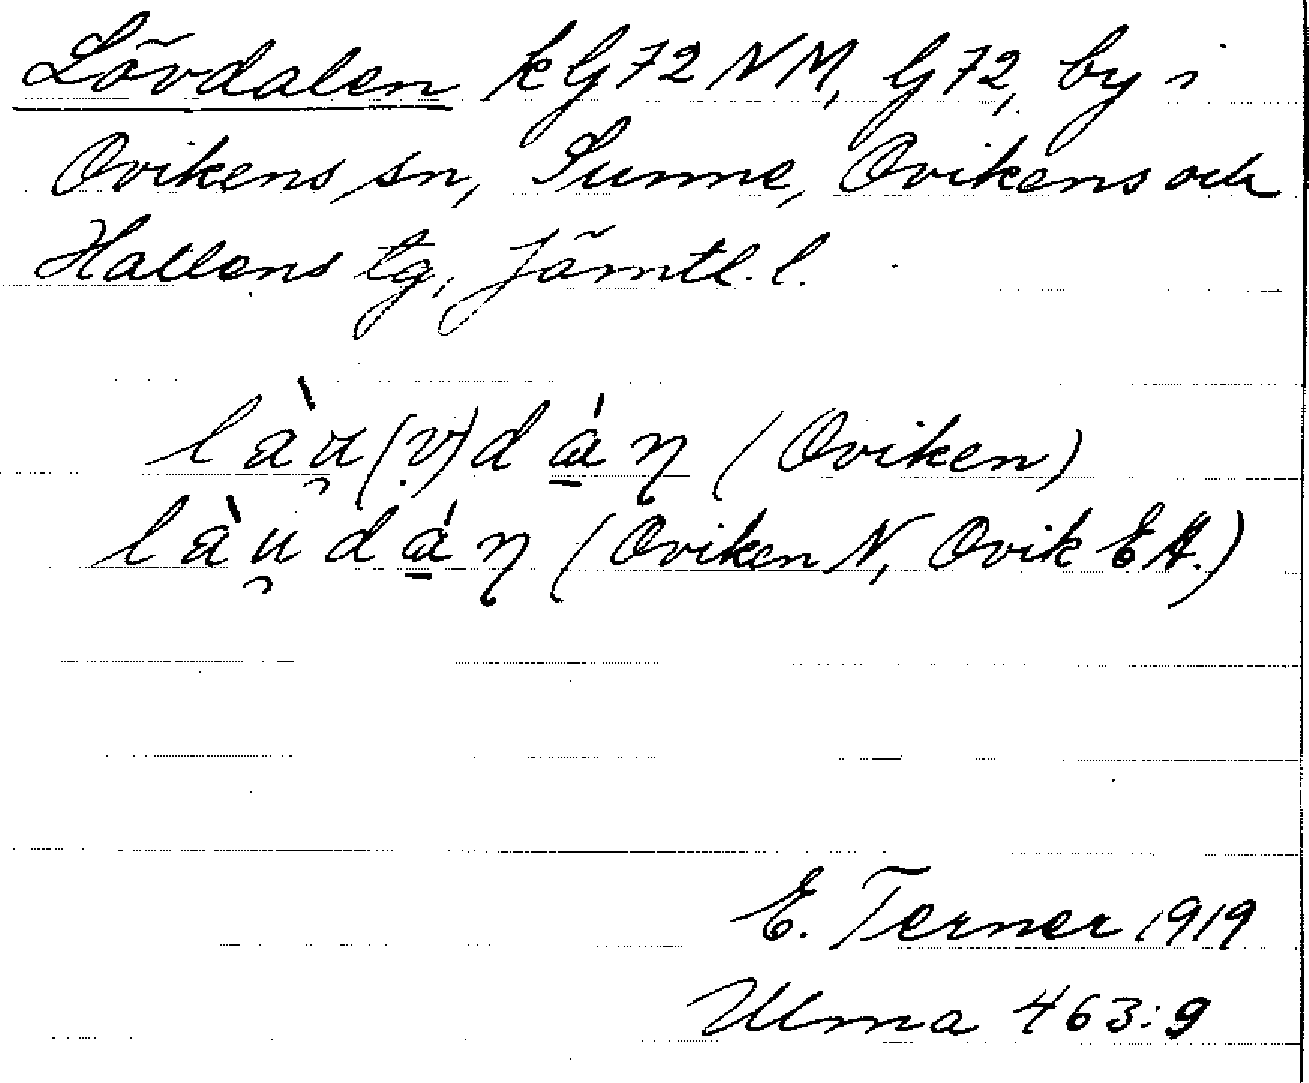 Lövdalen kG72NM, G72, by i
Ovikens sn, Sunne, Ovikens och
Hallens tg, Jämtl. l.
làu̯(v)dán̥ (Oviken)
làu̯dán̥ (Oviken N, Ovik EA.)
E. Terner 1919
Ulma 463:9